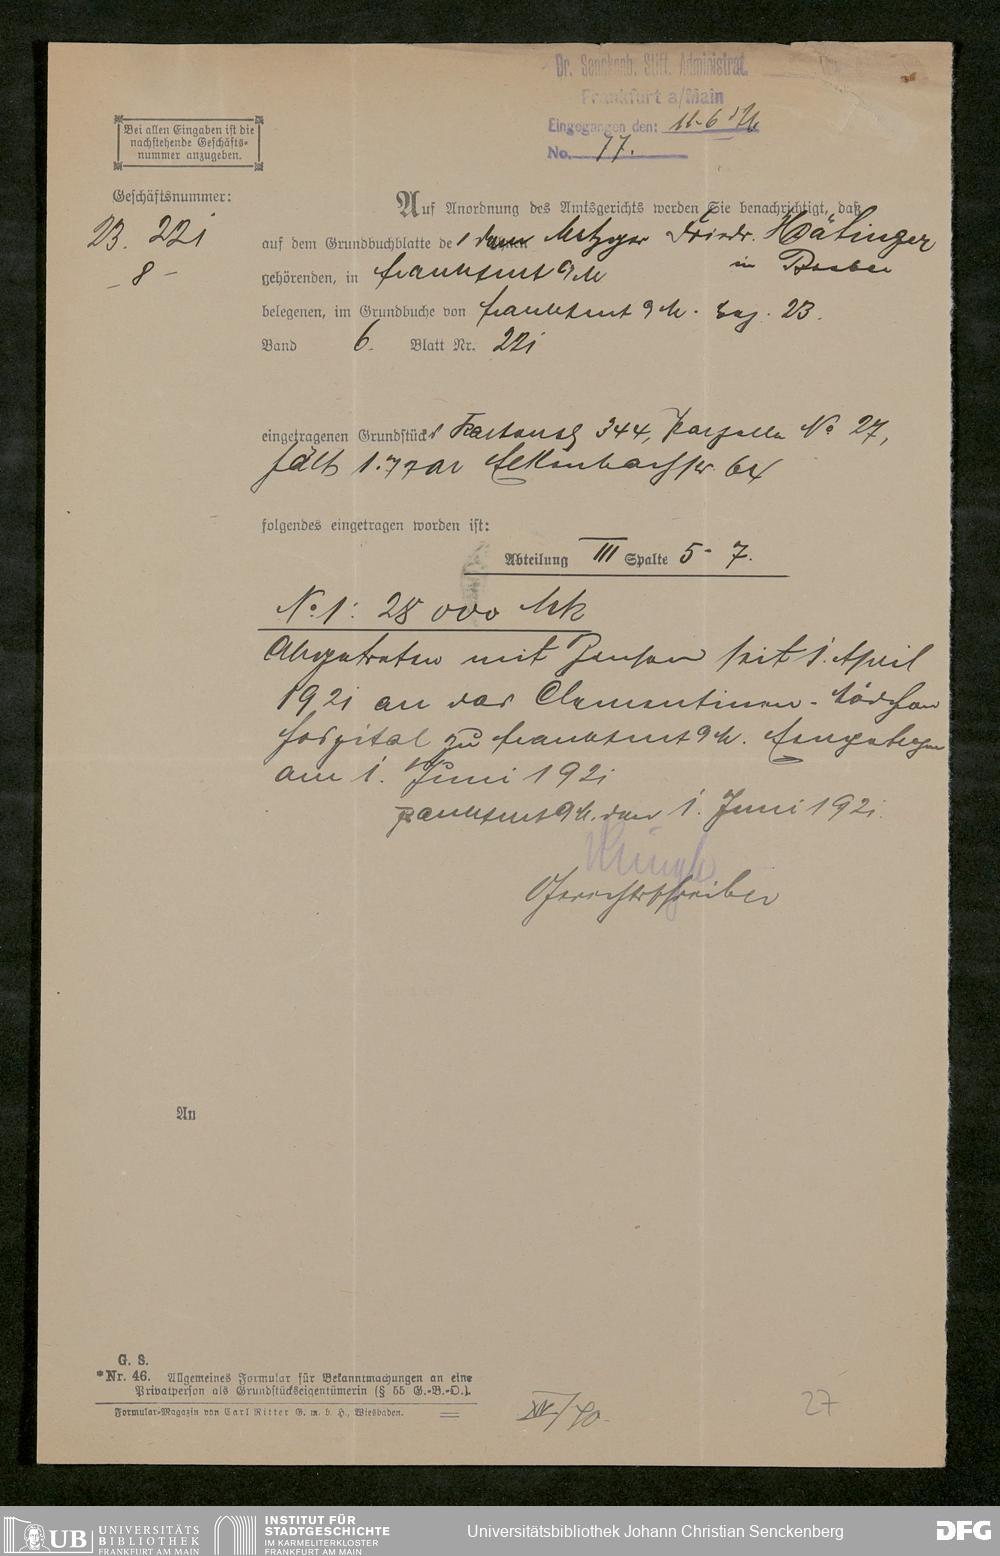 Dr. Senckenb. Stift. Administrat.
Frankfurt a/Main
Eingegangen den: 11-6
No. 77.
Bei allen Eingaben ist die
nachstehende Geschäfts-
nummer anzugeben.
Geschäftsnummer:
23. 221
8
Auf Anordnung des Amtsgerichts werden Sie benachrichtigt, daß
auf dem Grundbuchblatte de dem Metzger Friedr.
gehörenden, in Frankfurt a/M in
belegenen, im Grundbuche von Frankfurt a/M. Bez. 23.
Band 6. Blatt Nr. 221
eingetragenen Grundstücks Kartenbl 344, Parzelle No 27,
hält 1.77 ar 64
folgendes eingetragen worden ist:
Abteilung III Spalte 5-7.
No. 1: 28 000 Mrk
Abgetreten mit Zinsen seit 1. April
1921 an das Clementinen-Mädchen
hospital zu Frankfurt a/M. Eingetragen
am 1. Juni 1921
Frankfurt a/M. den 1. Juni 1921.
Gerichtsschreiber
An
G. S.
*Nr. 46. Allgemeines Formular für Bekanntmachungen an eine
Privatperson als Grundstückseigentümerin (§ 55 G.-B.-O.).
Formular-Magazin von Carl Ritter G. m. b. H., Wiesbaden.
27
UB UNIVERSITÄTS
BIBLIOTHEK
FRANKFURT AM MAIN
INSTITUT FÜR
STADTGESCHICHTE
IM KARMELITERKLOSTER
FRANKFURT AM MAIN
Universitätsbibliothek Johann Christian Senckenberg
DFG